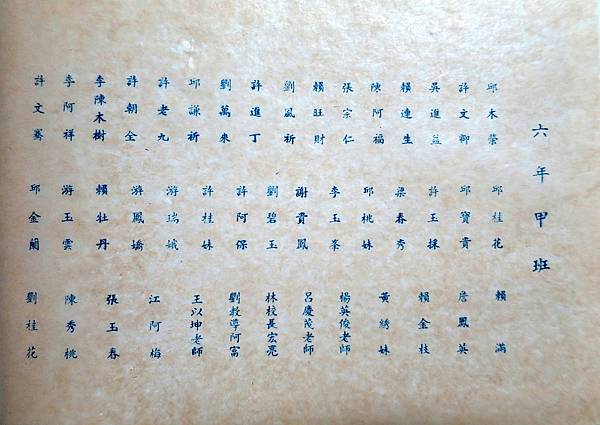 六年甲班
邱木榮
許文卿
吳進益
賴連生
陳阿福
張宗仁
賴旺財
劉風祈
許進丁
劉萬來
邱謙祈
許老九
許朝全
李陳木樹
李阿祥
許文騫
邱桂花
邱寶貴
許玉採
梁春秀
邱桃妹
李玉峯
謝貴鳳
劉碧玉
許阿保
許桂妹
游瑞娥
游鳳嬌
賴牡丹
游玉雲
邱金蘭
賴滿
詹鳳英
賴金枝
黃綉妹
楊英俊老師
呂慶茂老師
林校長宏亮
劉教導阿富
王以坤老師
江阿梅
張玉春
陳秀桃
劉桂花